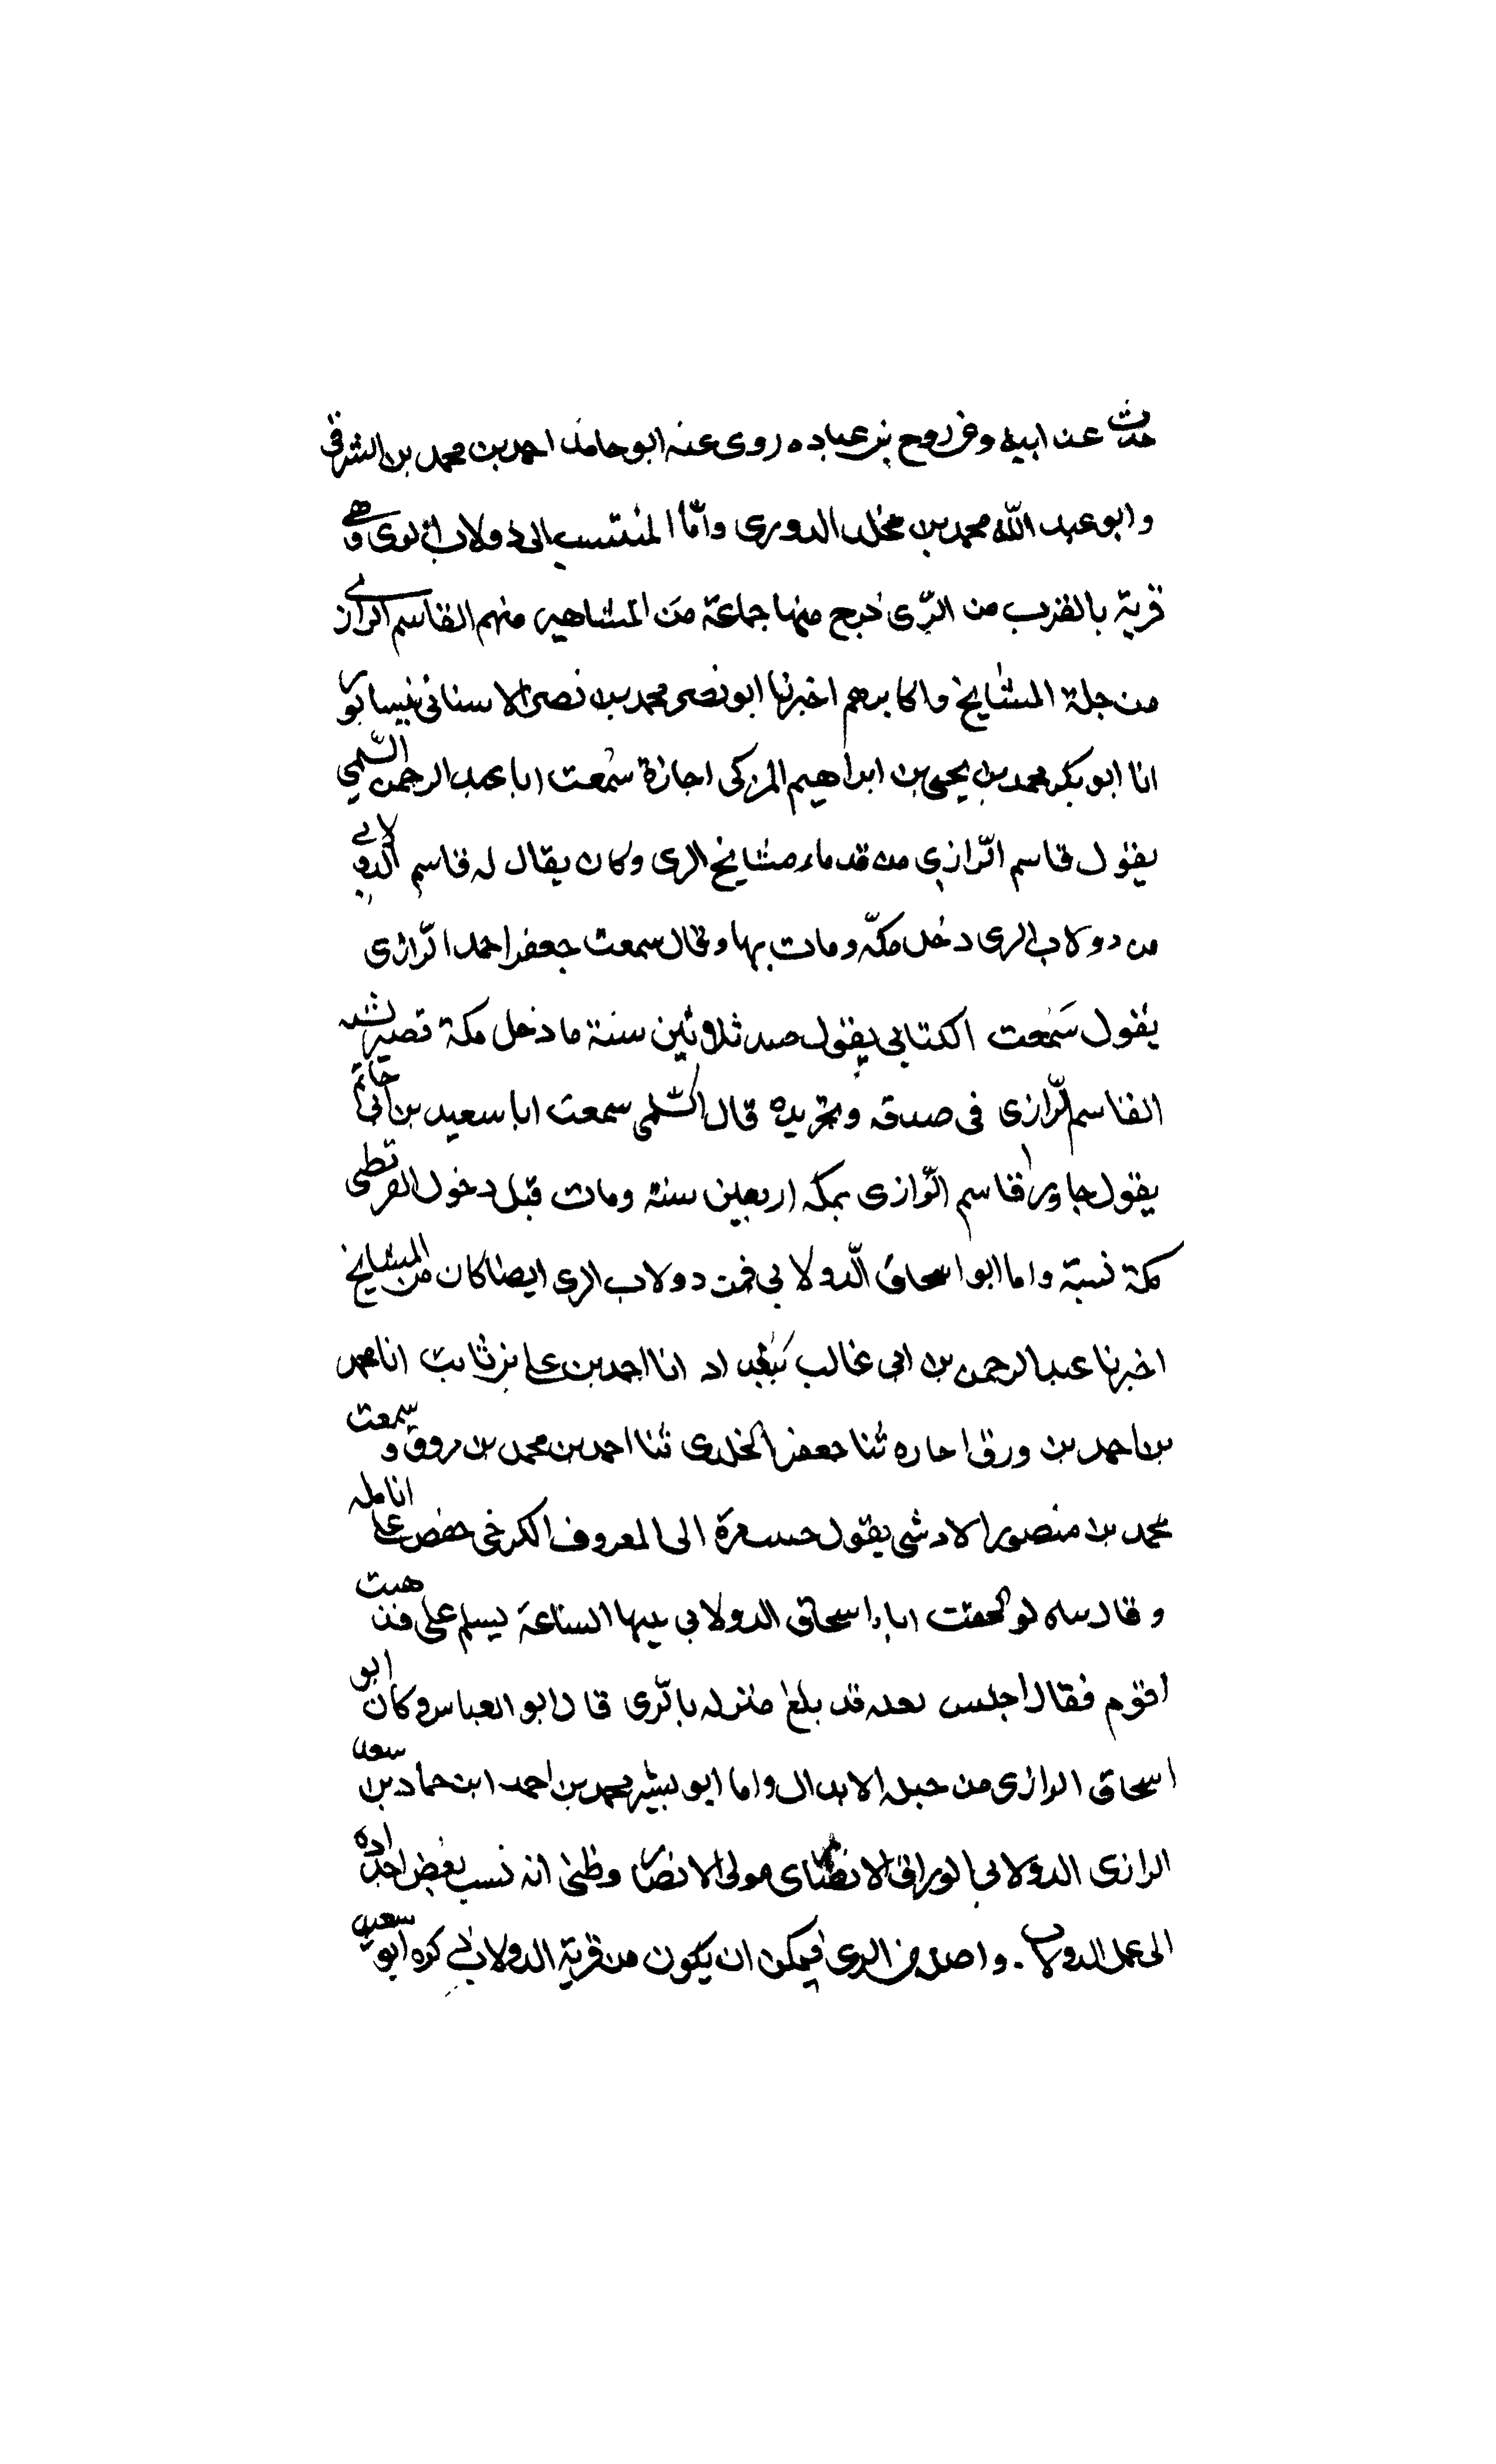 حدث عن ابيه وعن روح بن عباده روى عنه ابو حامد احمد بن محمد بن الشرقى
وابو عبد الله محمد بن مخلد الدورى واما المنتسب الى دولاب الرى وهى
قرية بالقرب من الرّى خرج منها جماعة من المشاهير منهم القاسم الرازى
من جلة المشايخ واكابرهم اخبرنا ابو نصر محمد بن نصر الاسنانى نيسابور
انا ابو بكر محمد بن يحيى بن ابراهيم المزكى اجازة سمعت ابا عبد الرحمن السّلمي
يقول قاسم الرّازي من قدماء مشايخ الرى وكان يقال له قاسم الدولابي
من دولاب الرى دخل مكّه ومات بها وقال سمعت جعفر احمد الرّازى
يقول سَمعت الكتابى يقول صد ثلاثين سنة ما دخل مكة تصير
القاسم الرّازى فى صدقه وتجريده قال السّلمى سمعت ابا سعيد بن ابى حاتم
يقول جاور قاسم الرّازى بمكه اربعين سنة ومات قبل دخول القرمطى
مكة نسبة واما ابو اسحاق الّدولابى فمن دولاب الرى ايضا كان من المشايخ
اخبرنا عبد الرحمن بن ابى غالب ببغداد انا احمد بن على بن ثابت انا محمد
بن احمد بن ورق احاره ثنا جعفر الخلدى ثنا احمد بن محمد بن مروق وسمعت
محمد بن منصور الادشى يقول حسمرة الى المعروف الكرخى خفض على انامله
وقال ساه لو لحقت ابا اسحاق الدولابى ببها الساعة يسلم على فذهبت
اقوم فقال اجلس لعله قد بلغ منزله بالّرى قال ابو العباس وكان ابو
اسحاق الرازى من جبله الابدال واما ابو بشر محمد بن احمد ابن حماد بن سعد
الرازى الدولابى الوراق الانصارى مولى الانصار وظنى انه نسب بعض اجداده
الى عمل الدولاب. واصله من الرى فيمكن ان يكون من قرية الدولاب ذكره ابو سعيد